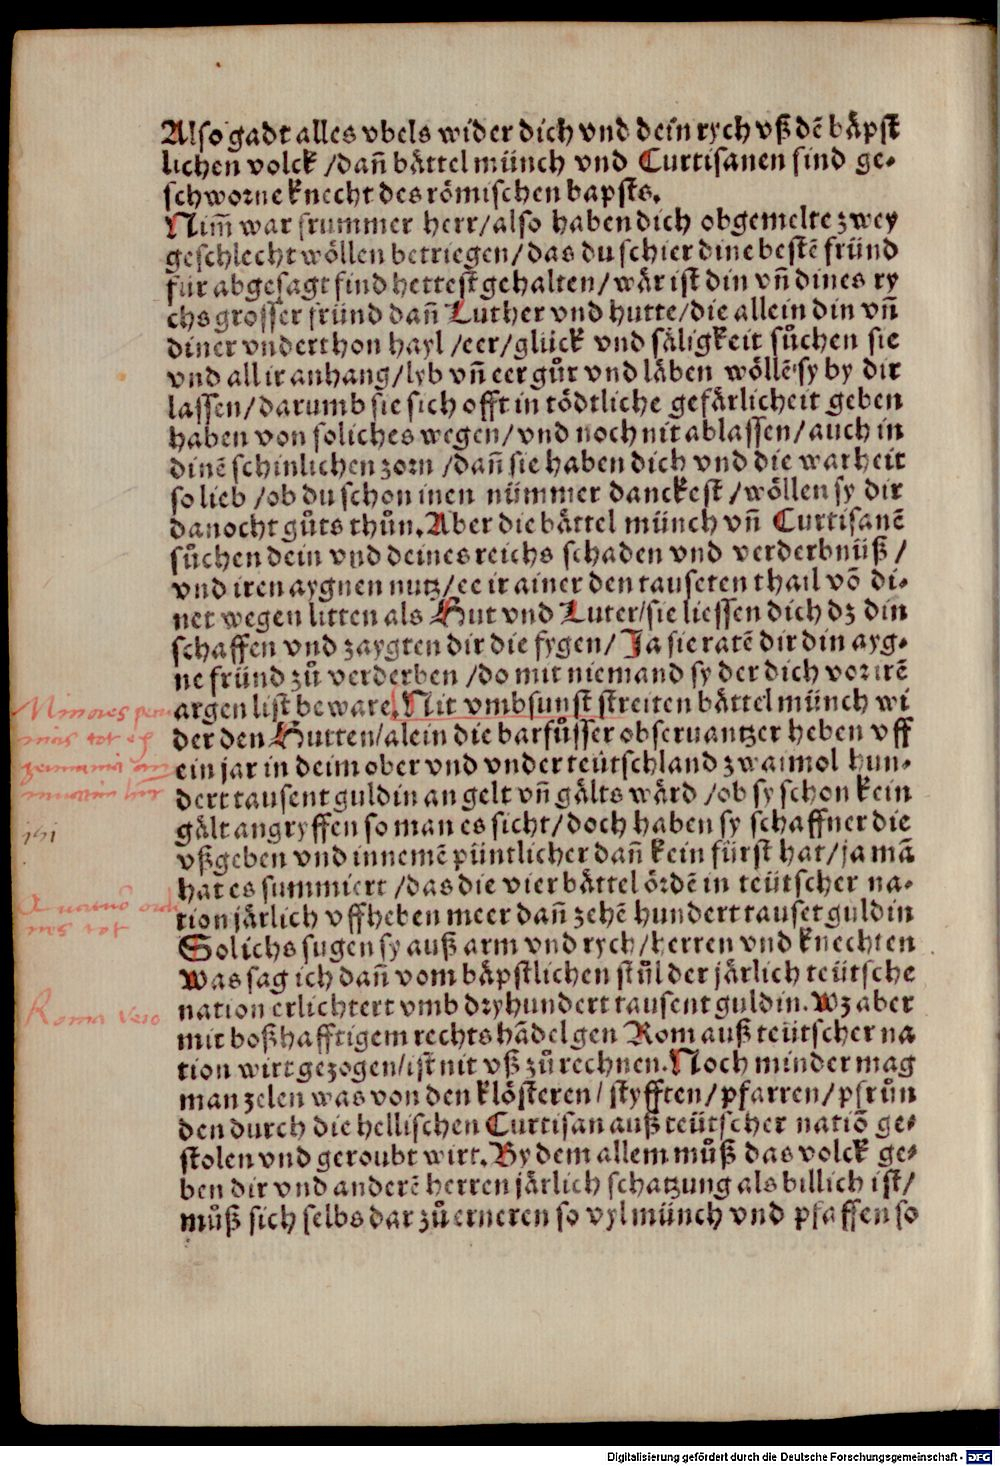 Also gadt alles vbels wider dich vnd dein rych vß dē bäpst
lichen volck /dañ bättel münch vnd Curtisanen sind ge⸗
schworne knecht des römischen bapsts.
Nim̄ war frummer herr/also haben dich obgemelte zwey
geschlecht wöllen betriegen/das du schier dine bestē fründ
für abgesagt find hettest gehalten/wär ist din vñ dines ry
chs grosser fründ dañ Luther vnd hutte/die allein din vñ
diner vnderthon hayl /eer/glück vnd säligkeit sůchen sie
vnd all ir anhang/lyb vñ eer gůt vnd läben wöllē sy by dir
lassen/darumb sie sich offt in tödtliche gefärlicheit geben
haben von soliches wegen/vnd noch nit ablassen/auch in
dinē schinlichen zorn /dañ sie haben dich vnd die warheit
so lieb /ob du schon inen nümmer danckest /wöllen sy dir
danocht gůts thůn. Aber die bättel münch vñ Curtisanē
sůchen dein vnd deines reichs schaden vnd verderbnüß /
vnd iren aygnen nutz/ee ir ainer den tauseten thail vō di⸗
net wegen litten als Hut vnd Luter/sie liessen dich dz din
schaffen vnd zaygten dir die fygen/ Ja sie ratē dir din ayg⸗
ne fründ zů verderben /do mit niemand sy der dich vor irē
argen list beware. Nit vmbsunst streiten bättel münch wi
der den Hutten/alein die barfůsser obseruantzer heben vff
ein jar in deim ober vnd vnder teütschland zwaimol hun⸗
dert tausent guldin an gelt vñ gälts wärd /ob sy schon kein
gält angryffen so man es sicht/doch haben sy schaffner die
vßgeben vnd innemē püntlicher dañ kein fürst hat/ja mā
hat es summiert /das die vier bättel ördē in teütscher na⸗
tion järlich vffheben meer dañ zehē hundert tauset guldin
Solichs sugen sy auß arm vnd rych/herren vnd knechten
Was sag ich dañ vom bäpstlichen stůl der järlich teütsche
nation erlichtert vmb dryhundert tausent guldin. Wz aber
mit boßhafftigem rechts hādel gen Rom auß teütscher na
tion wirt gezogen/ist nit vß zů rechnen. Noch minder mag
man zelen was von den klösteren/ styfften/pfarren/pfrůn
den durch die hellischen Curtisan auß teütscher natiō ge⸗
stolen vnd geroubt wirt. By dem allem můß das volck ge⸗
ben dir vnd anderē herren järlich schatzung als billich ist/
můß sich selbs dar zů erneren so vyl münch vnd pfaffen so
Minores
tot
germania
tot
Roma vero
Digitalisierung gefördert durch die Deutsche Forschungsgemeinschaft - DFG